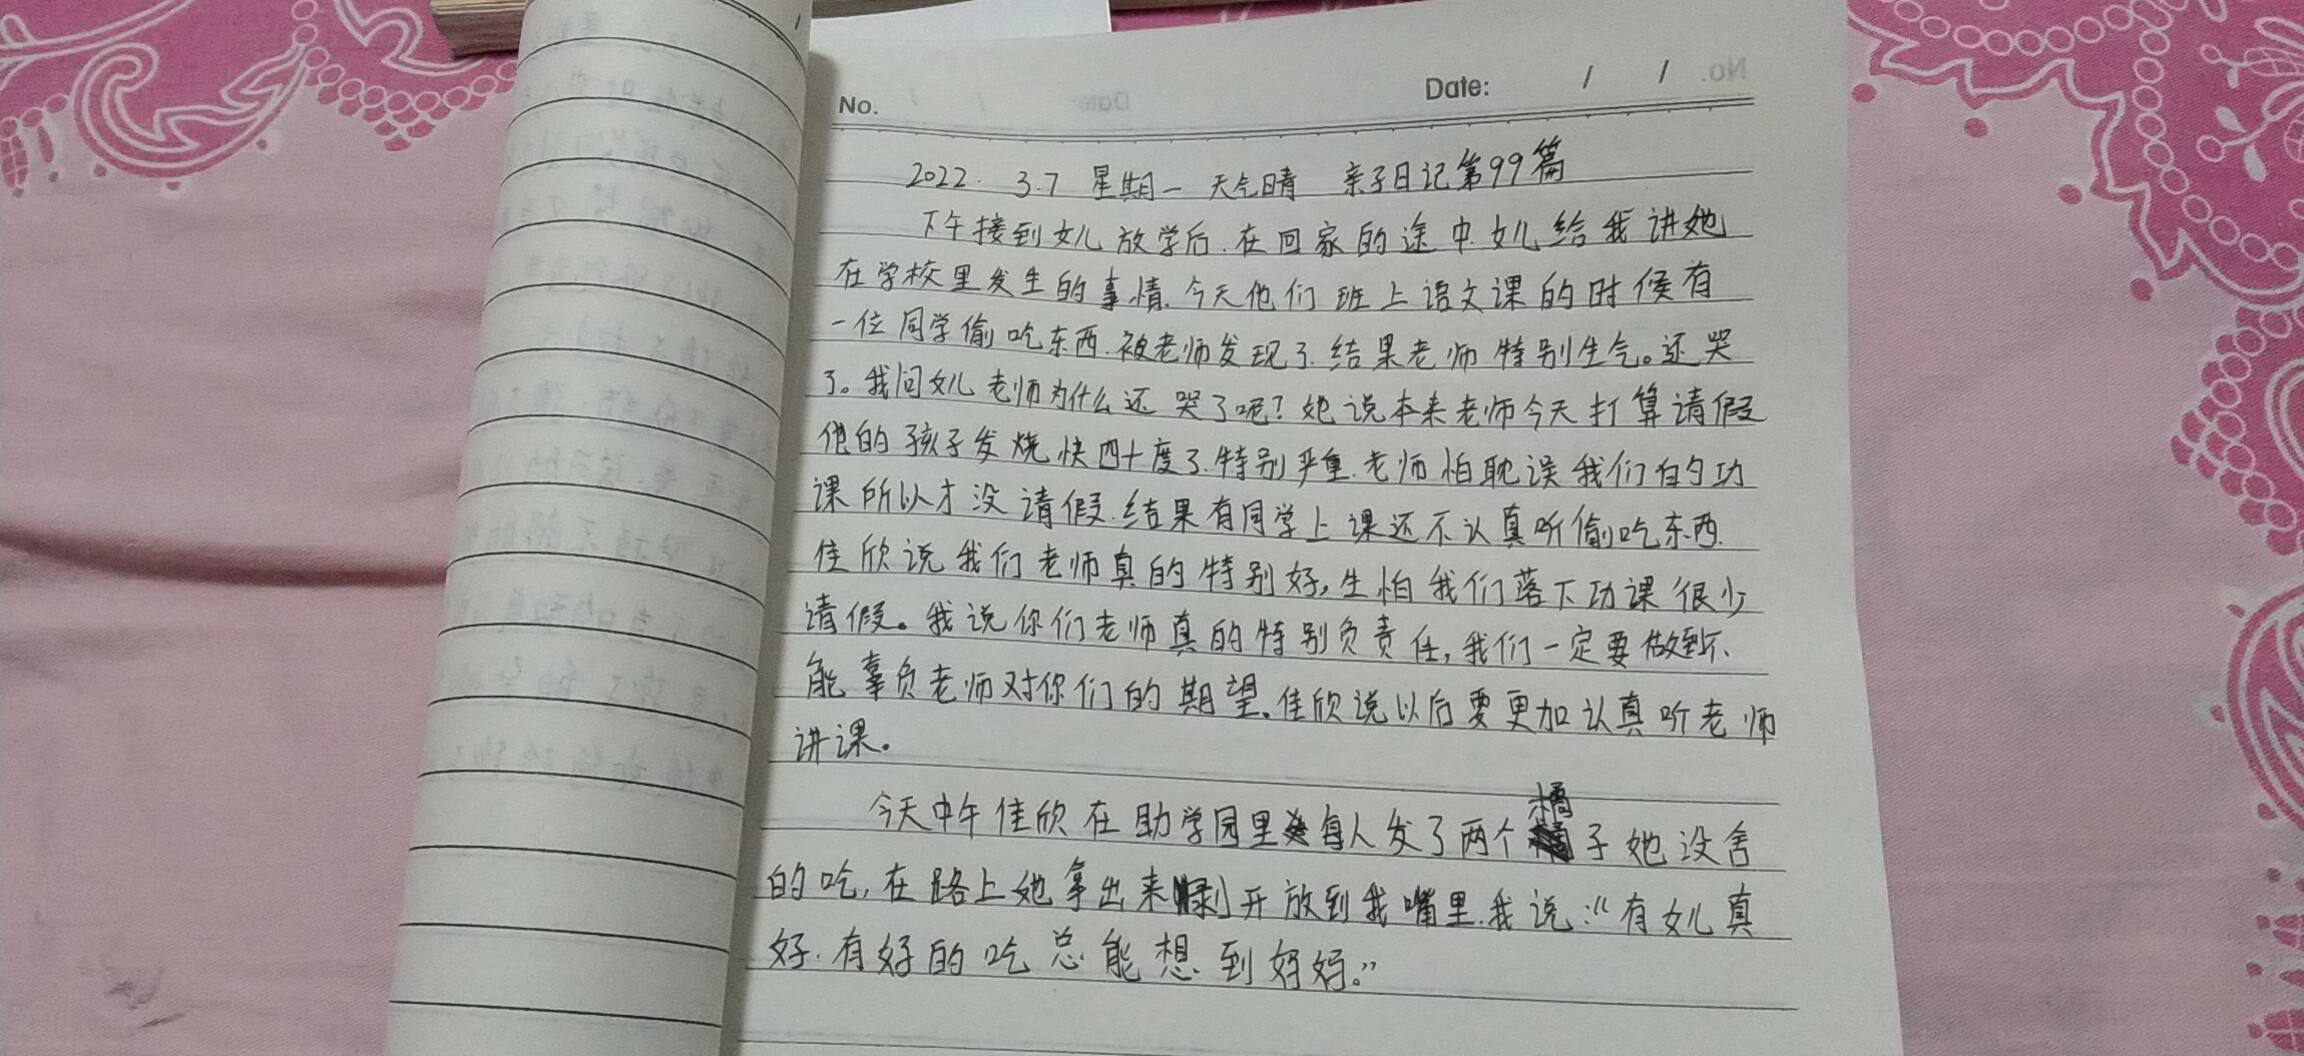 No.
Date: / /
2022. 3.7 星期一 天气晴 亲子日记第99篇
下午接到女儿放学后.在回家的途中.女儿给我讲她
在学校里发生的事情.今天他们班上语文课的时候有
一位同学偷吃东西.被老师发现了.结果老师特别生气。还哭
了。我问女儿老师为什么还哭了呢?她说本来老师今天打算请假
他的孩子发烧快四十度了.特别严重.老师怕耽误我们的功
课所以才没请假.结果有同学上课还不认真听偷吃东西.
佳欣说我们老师真的特别好,生怕我们落下功课很少
请假。我说你们老师真的特别负责任,我们一定要做到不
能辜负老师对你们的期望。佳欣说以后要更加认真听老师
讲课。
今天中午佳欣在助学园里每人发了两个橘子她没舍
的吃,在路上她拿出来剥开放到我嘴里.我说:“有女儿真
好.有好的吃总能想到妈妈。”